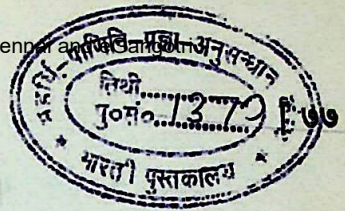 ennai and eGangotri
महर्षि-पाणिनि-प्रज्ञा-अनुसन्धान
तिथी..............
पु०सं०..1379
७७
भारती पुस्तकालय